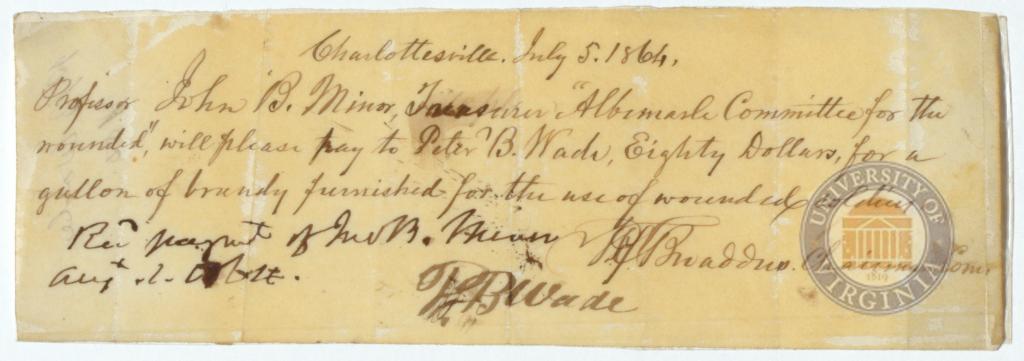 Charlottesville. July 5. 1864.
Professor John B. Minor, Treasurer "Albemarle Committee for the
wounded", will please pay to Peter B. Wade, Eighty Dollars, for a
gallon of brandy furnished for the use of wounded soldiers
Rec payment of Jno B. Minor
W. F. Broaddus. Chairman Com.
Aug 1. 1864.
P B Wade
UNIVERSITY OF VIRGINIA
1819